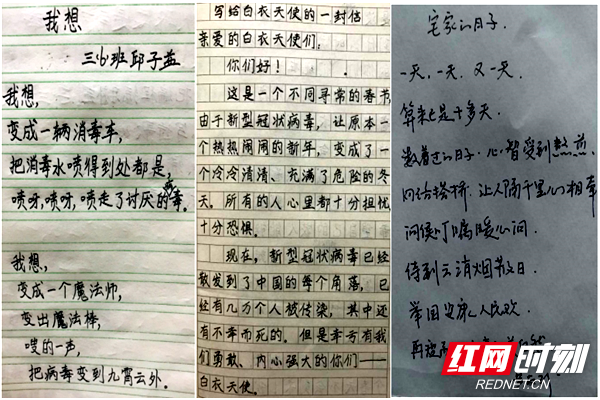 我想
三(6)班邱子益
我想,
变成一辆消毒车,
把消毒水喷得到处都是,
喷呀,喷呀,喷走了讨厌的病毒。
我想,
变成一个魔法师,
变出魔法棒,
嗖的一声,
把病毒变到九霄云外。
写给白衣天使的一封信
亲爱的白衣天使们:
你们好!
这是一个不同寻常的春节,
由于新型冠状病毒,让原本一
个热热闹闹的新年,变成了一
个冷冷清清、充满了危险的冬
天。所有的人心里都十分担忧
十分恐惧。
现在,新型冠状病毒已经
散发到了中国的每个角落,已
经有几万个人被传染,其中还
有不幸而死的。但是幸亏有我
们勇敢、内心强大的你们——
白衣天使。
宅家的日子.
一天,一天,又一天.
算来已是十多天.
数着过的日子.心智受到熬煎.
网络搭桥.让人隔千里心相牵
问候叮嘱暖心间.
待到云消烟散日.
举国安康人民欢.
再
红网时刻
REDNET.CN